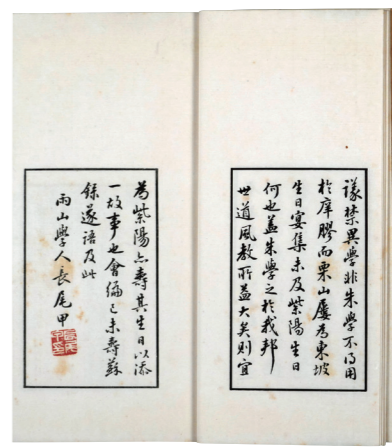 議禁異學非朱學不得用
於庠膠而栗山屢為東坡
生日宴集未及紫陽生日
何也蓋朱學之於我邦
世道風教所益大矣則宜
為紫陽亦壽其生日以添
一故事也會編己未壽蘇
錄遂語及此
雨山學人長尾甲